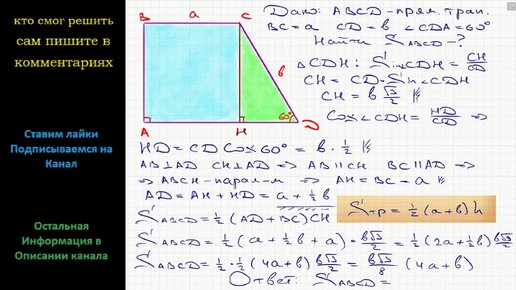 кто смог решить
сам пишите в
комментариях
Ставим лайки
Подписываемся на
Канал
Остальная
Информация в
Описании канала
B a C
b
60°
A H D
Дано: ABCD-прям. трап.
BC=a CD=b ∠CDA=60°
Найти S ABCD-?
△CDH: Sin∠CDH = CH/CD
CH = CD·Sin∠CDH
CH = b √3/2
Cos∠CDH = HD/CD ⇒
HD = CD Cos60° = b·1/2
AB⊥AD CH⊥AD ⇒ AB∥CH BC∥AD ⇒
⇒ ABCH-парал-м ⇒ AH=BC=a
AD = AH+HD = a+1/2b
Sтр = 1/2(a+b)h
S ABCD = 1/2(AD+BC)CH
S ABCD = 1/2(a+1/2b+a)·b√3/2 = 1/2(2a+1/2b)b√3/2
S ABCD = 1/2·1/2(4a+b)b√3/2 = b√3/8 (4a+b)
Ответ: S ABCD =